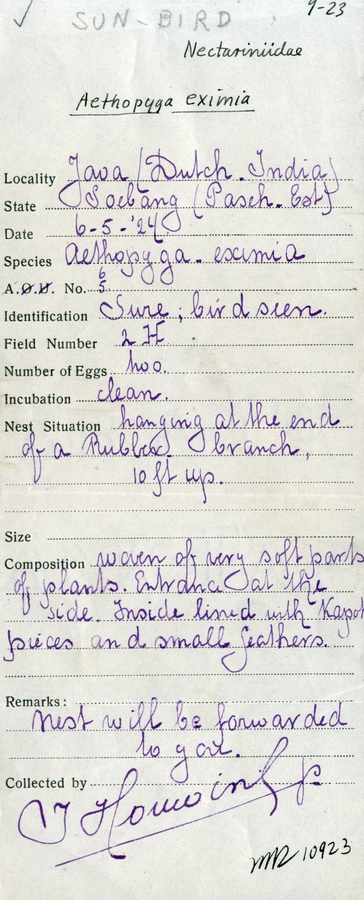 ✓ SUN-BIRD 9-23
Nectariniidae
Aethopyga eximia
Locality Java (Dutch. India)
State Soebang (Pasch. Est)
Date 6-5-'24
Species Aethopyga. eximia
A.O.U. No. 6/5.
Identification Sure; bird seen.
Field Number 2 H
Number of Eggs two.
Incubation clean.
Nest Situation hanging at the end
of a Rubber branch,
10 ft up.
Size
Composition woven of very soft parts
of plants. Entrance at the
side. Inside lined with Kapok
pieces and small feathers.
Remarks:
Nest will be forwarded
to you.
Collected by
10923